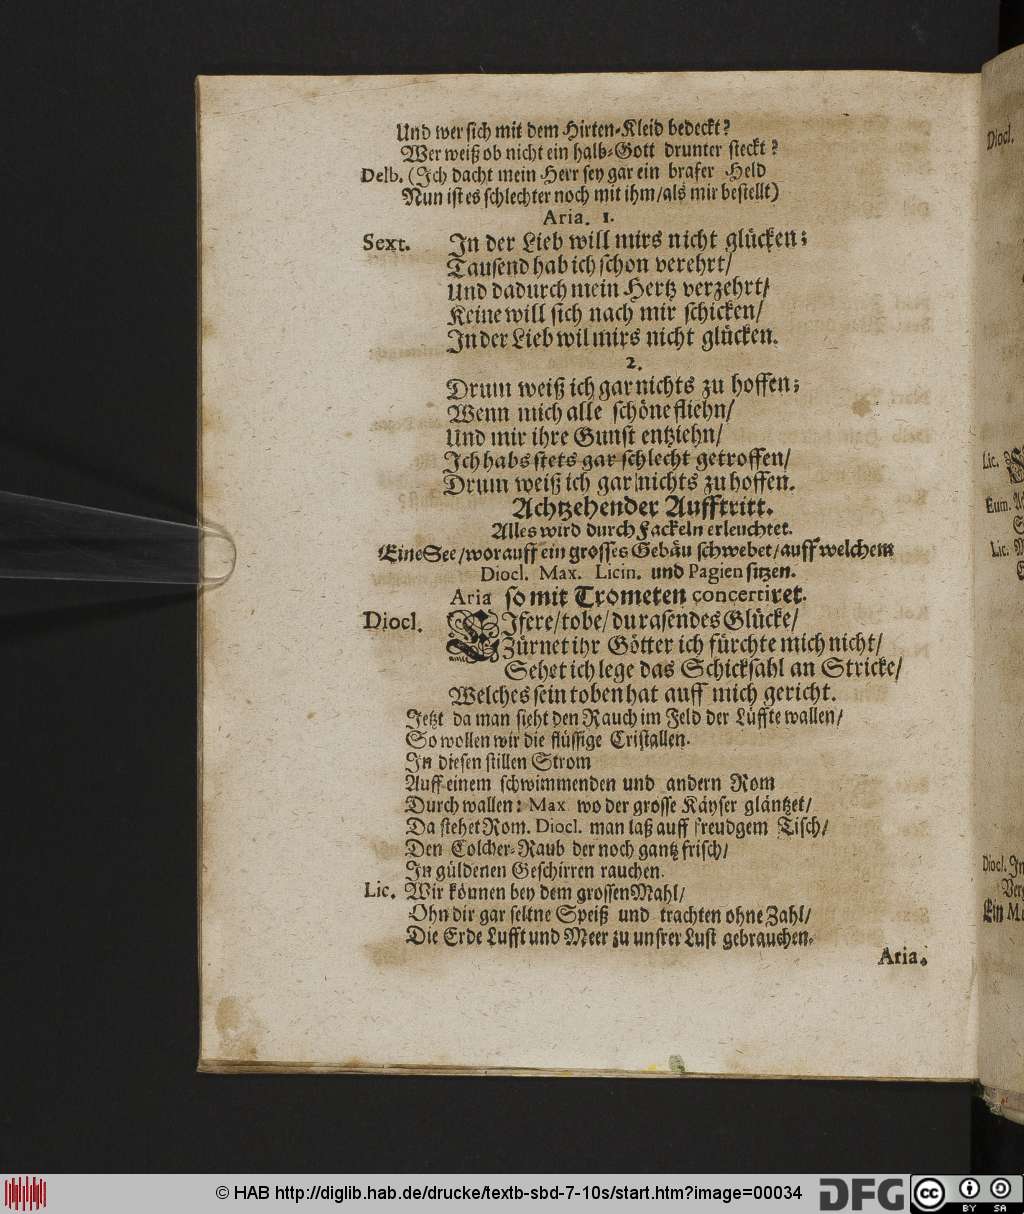 Und wer sich mit dem Hirten-Kleid bedeckt?
Wer weiß ob nicht ein halb-Gott drunter steckt?
Delb. (Ich dacht mein Herr sey gar ein brafer Held
Nun ist es schlechter noch mit ihm/als mir bestellt)
Aria. 1.
Sext. In der Lieb will mirs nicht glücken;
Tausend hab ich schon verehrt/
Und dadurch mein Hertz verzehrt/
Keine will sich nach mir schicken/
In der Lieb wil mirs nicht glücken.
2.
Drum weiß ich gar nichts zu hoffen;
Wenn mich alle schöne fliehn/
Und mir ihre Gunst entziehn/
Ich habs stets gar schlecht getroffen/
Drum weiß ich gar nichts zu hoffen.
Achtzehender Aufftritt.
Alles wird durch Fackeln erleuchtet.
Eine See/worauff ein grosses Gebäu schwebet/auff welchem
Diocl. Max. Licin. und Pagien sitzen.
Aria so mit Trometen concertiret.
Diocl. EIfere/tobe/du rasendes Glücke/
Zürnet ihr Götter ich fürchte mich nicht/
Sehet ich lege das Schicksahl an Stricke/
Welches sein toben hat auff mich gericht.
Jetzt da man sieht den Rauch im Feld der Lüffte wallen/
So wollen wir die flüssige Cristallen.
In diesen stillen Strom
Auff einem schwimmenden und andern Rom
Durch wallen: Max wo der grosse Käyser gläntzet/
Da stehet Rom. Diocl. man laß auff freudgem Tisch/
Den Colcher-Raub der noch gantz frisch/
In güldenen Geschirren rauchen.
Lic. Wir können bey dem grossen Mahl/
Ohn dir gar seltne Speiß und trachten ohne Zahl/
Die Erde Lufft und Meer zu unsrer Lust gebrauchen.
Aria.
Diocl.
Lic.
Eum.
Lic.
Diocl. In
Ver
Ein
© HAB http://diglib.hab.de/drucke/textb-sbd-7-10s/start.htm?image=00034
DFG
cc
BY SA